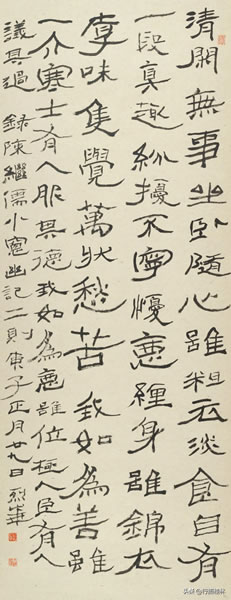 清閑無事坐卧隨心雖粗衣淡食自有
一段真趣紛擾不寧憂患纏身雖錦衣
厚味隻覺萬狀愁苦 我如為善雖
一介寒士有人服其德我如為惡雖位極人臣有人
議其過 錄陳繼儒小窗幽記二則庚子正月廿九日烈華